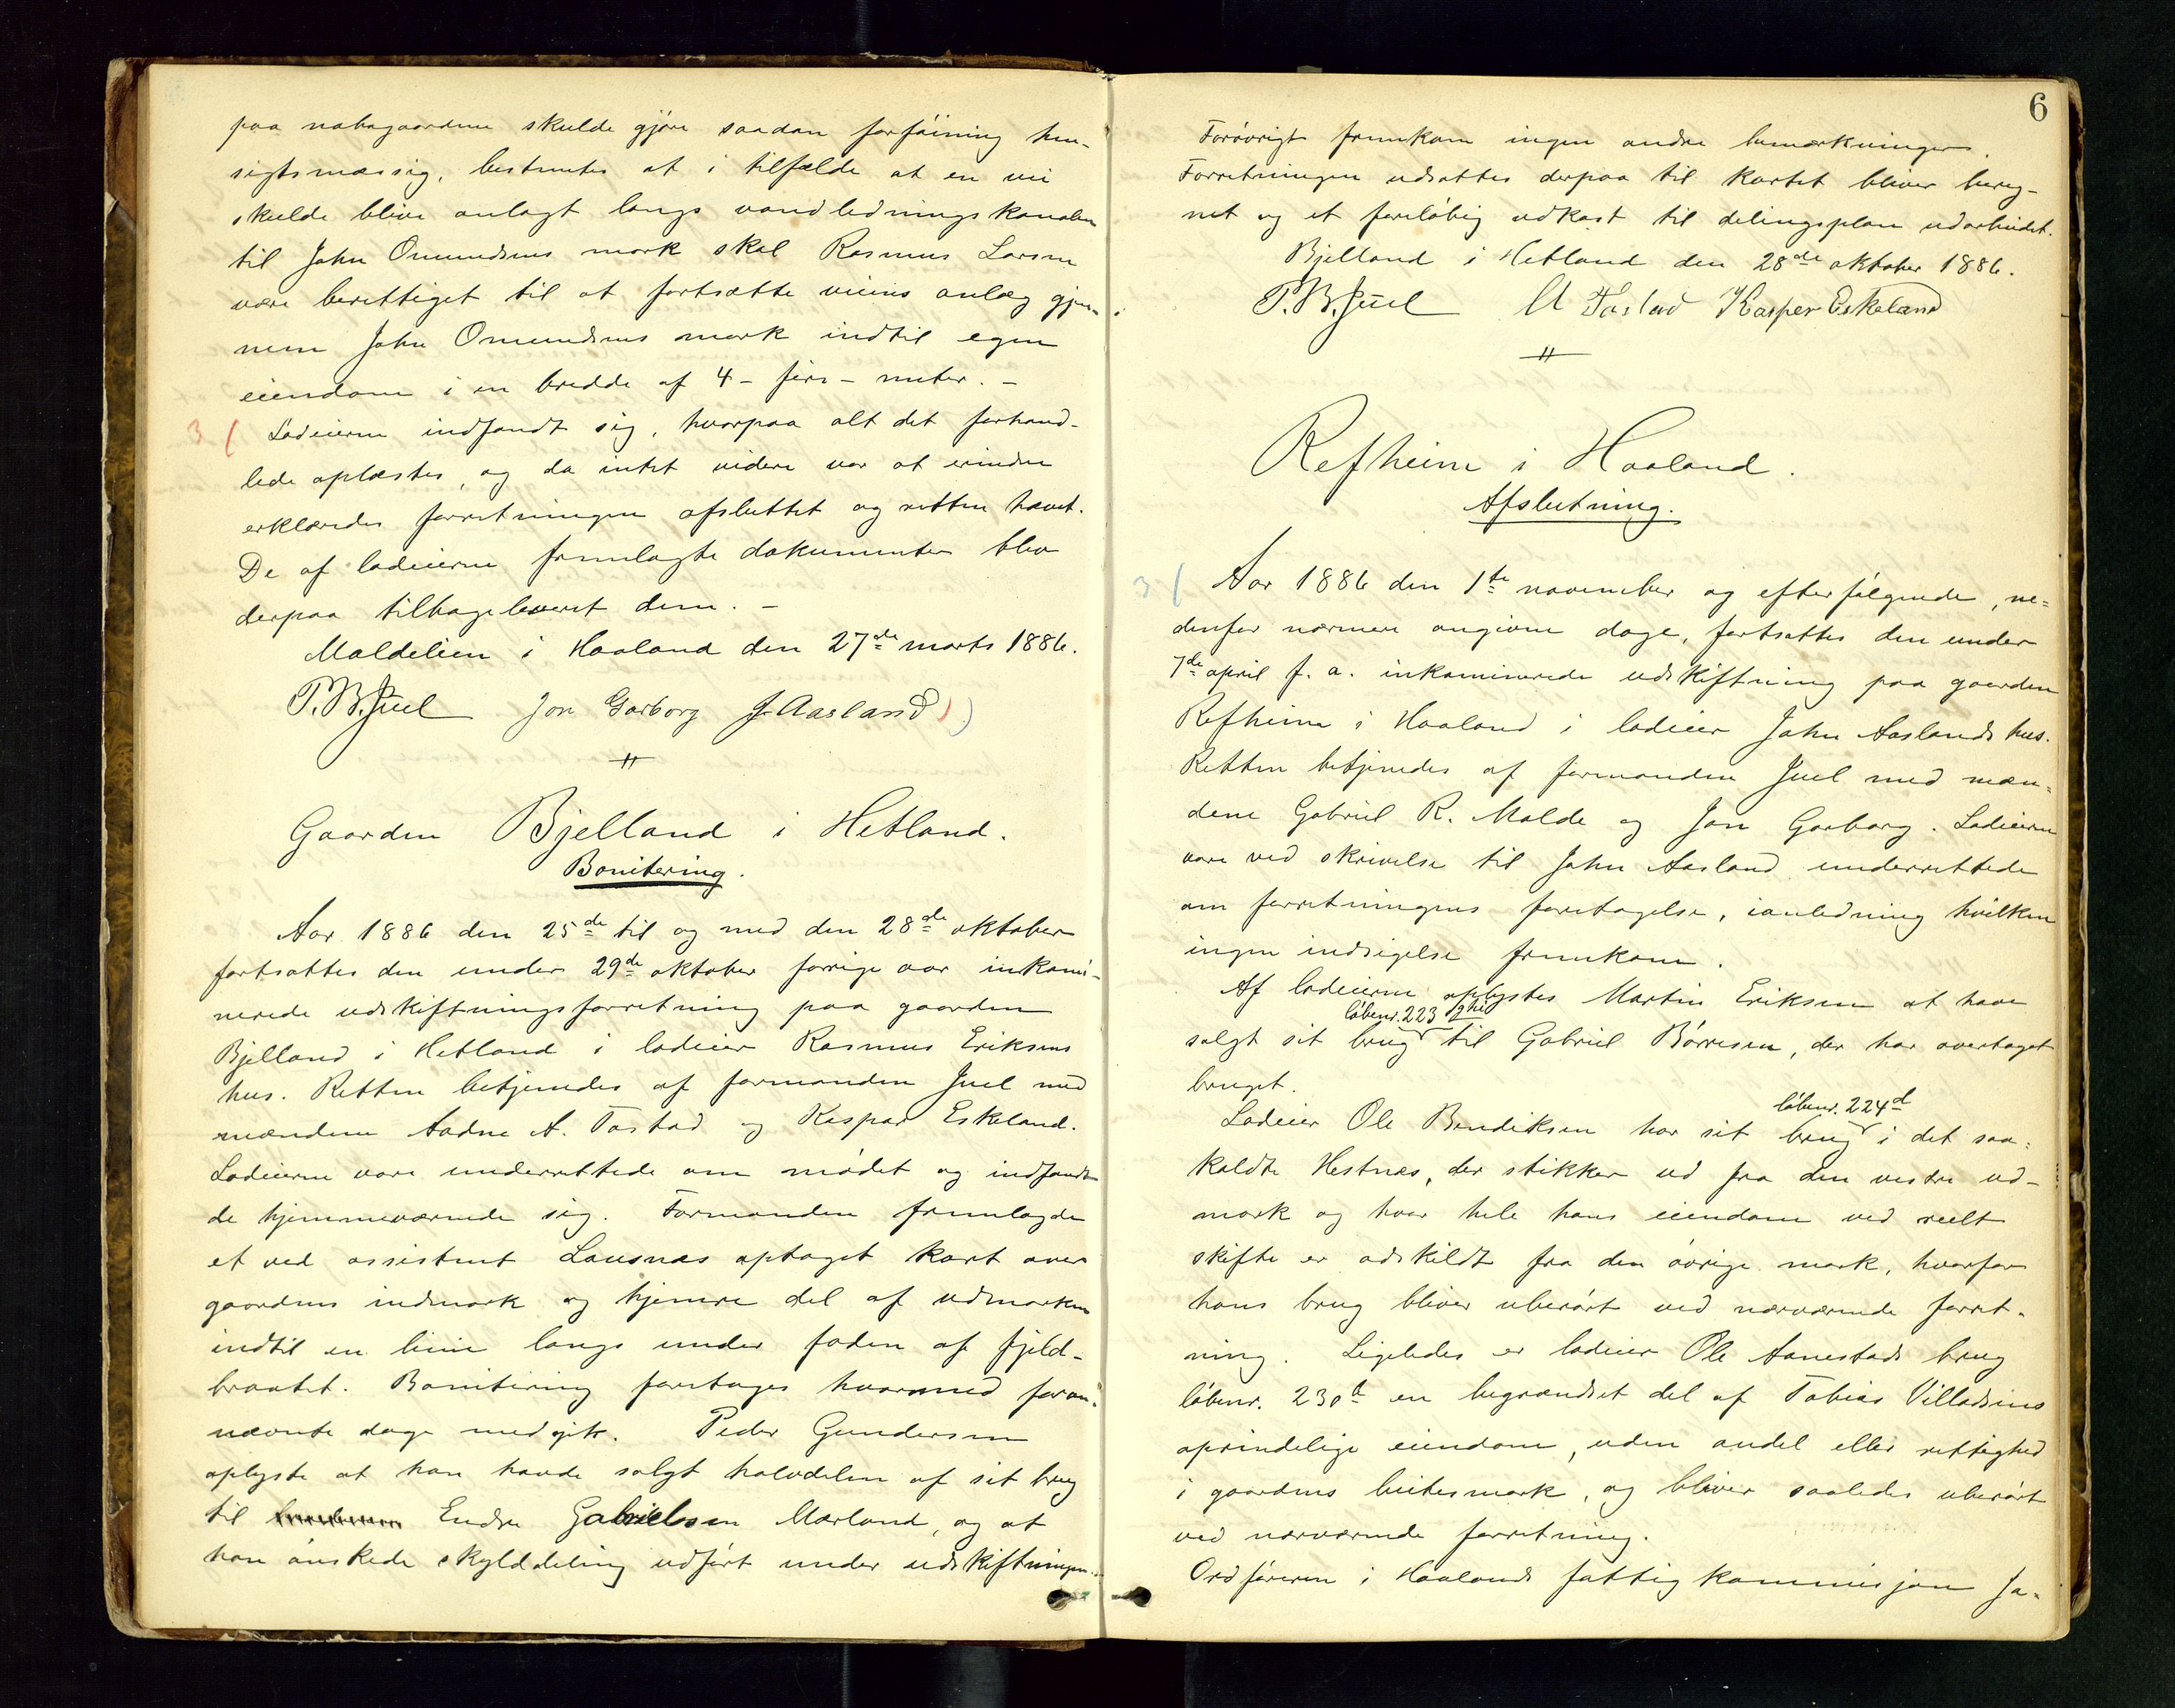 paa nabogaardene skulde gjøre saadan forføining hen-
sigtsmæssig, bestemtes at i tilfælde at en vei
skulde blive anlagt langs vandledningskanalen
til John Omundsens mark skal Rasmus Larsen
være berettiget til at fortsætte veiens anlæg gjen-
nem John Omundsens mark indtil egen
eiendom i en bredde af 4 - fire - meter. -
3 ( Lodeierne indfandt sig, hvorpaa alt det forhand-
lede oplæstes, og da intet videre var at erindre
erklæredes forretningen afsluttet og retten hævet.
De af lodeierne fremlagte dokumenter blev
derpaa tilbageleveret dem. -
Maldelien i Haaland den 27de marts 1886.
P.B.Juel Jon Garborg J. Aasland ) )
Gaarden Bjelland i Hetland.
Bonitering.
Aar 1886 den 25de til og med den 28de oktober
fortsattes den under 29de oktober forrige aar inkami-
nerede udskiftningsforretning paa gaarden
Bjelland i Hetland i lodeier Rasmus Eriksens
hus. Retten betjenedes af formanden Juel med
mændene Aadne A. Tastad og Kaspar Eskeland.
Lodeierne vare underrettede om mødet og indfandt
de hjemmeværende sig. Formanden fremlagde
et ved assistent Lausnæs optaget kart over
gaardens indmark og hjemre del af udmarken
indtil en linie langs under foden af fjeld-
braatet. Bonitering foretoges hvormed foran-
nævnte dage medgik. Peder Gundersen
oplyste at han havde solgt halvdelen af sit brug
til Endre Gabrielsen Mæland, og at
han ønskede skylddeling udført under udskiftningen.
6
Forøvrigt fremkom ingen andre bemærkninger.
Forretningen udsattes derpaa til kartet bliver bereg-
net og et foreløbig udkast til delingsplan udarbeidet.
Bjelland i Hetland den 28de oktober 1886.
P.B.Juel A Tastad Kasper Eskeland
Refheim i Haaland.
Afslutning.
3 ( Aar 1886 den 1ste november og efterfølgende, ne-
denfor nærmere angivne dage, fortsattes den under
7de april f. a. inkaminerede udskiftning paa gaarden
Refheim i Haaland i lodeier John Aaslands hus.
Retten betjenedes af formanden Juel med mæn-
dene Gabriel R. Malde og Jon Garborg. Lodeierne
vare ved skrivelse til John Aasland underrettede
om forretningens foretagelse, ianledning hvilken
ingen indsigelse fremkom.
Af lodeierne oplystes Martin Eriksen at have
løbenr. 223
solgt sit brug til Gabriel Børresen, der har overtaget
bruget.
løbenr. 224d
Lodeier Ole Bendiksen har sit brug i det saa-
kaldte Hestnæs, der stikker ud fra den vestre ud-
mark og hvor hele hans eiendom ved reelt
skifte er adskildt fra den øvrige mark, hvorfor
hans brug bliver uberørt ved nærværende forret-
ning. Ligeledes er lodeier Ole Aanestads brug
løbenr. 230b en begrændset del af Tobias Villadsens
oprindelige eiendom, uden andel eller rettighed
i gaardens beitesmark, og bliver saaledes uberørt
ved nærværende forretning.
Ordføreren i Haalands fattigkommisjon Ja-